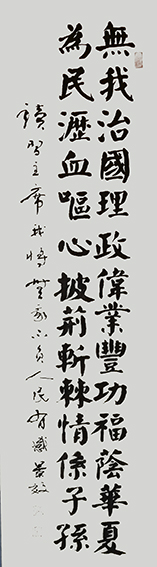 無我治國理政偉業豐功福蔭華夏
為民瀝血嘔心披荊斬棘情係子孫
讀習主席我將無我不負人民有感